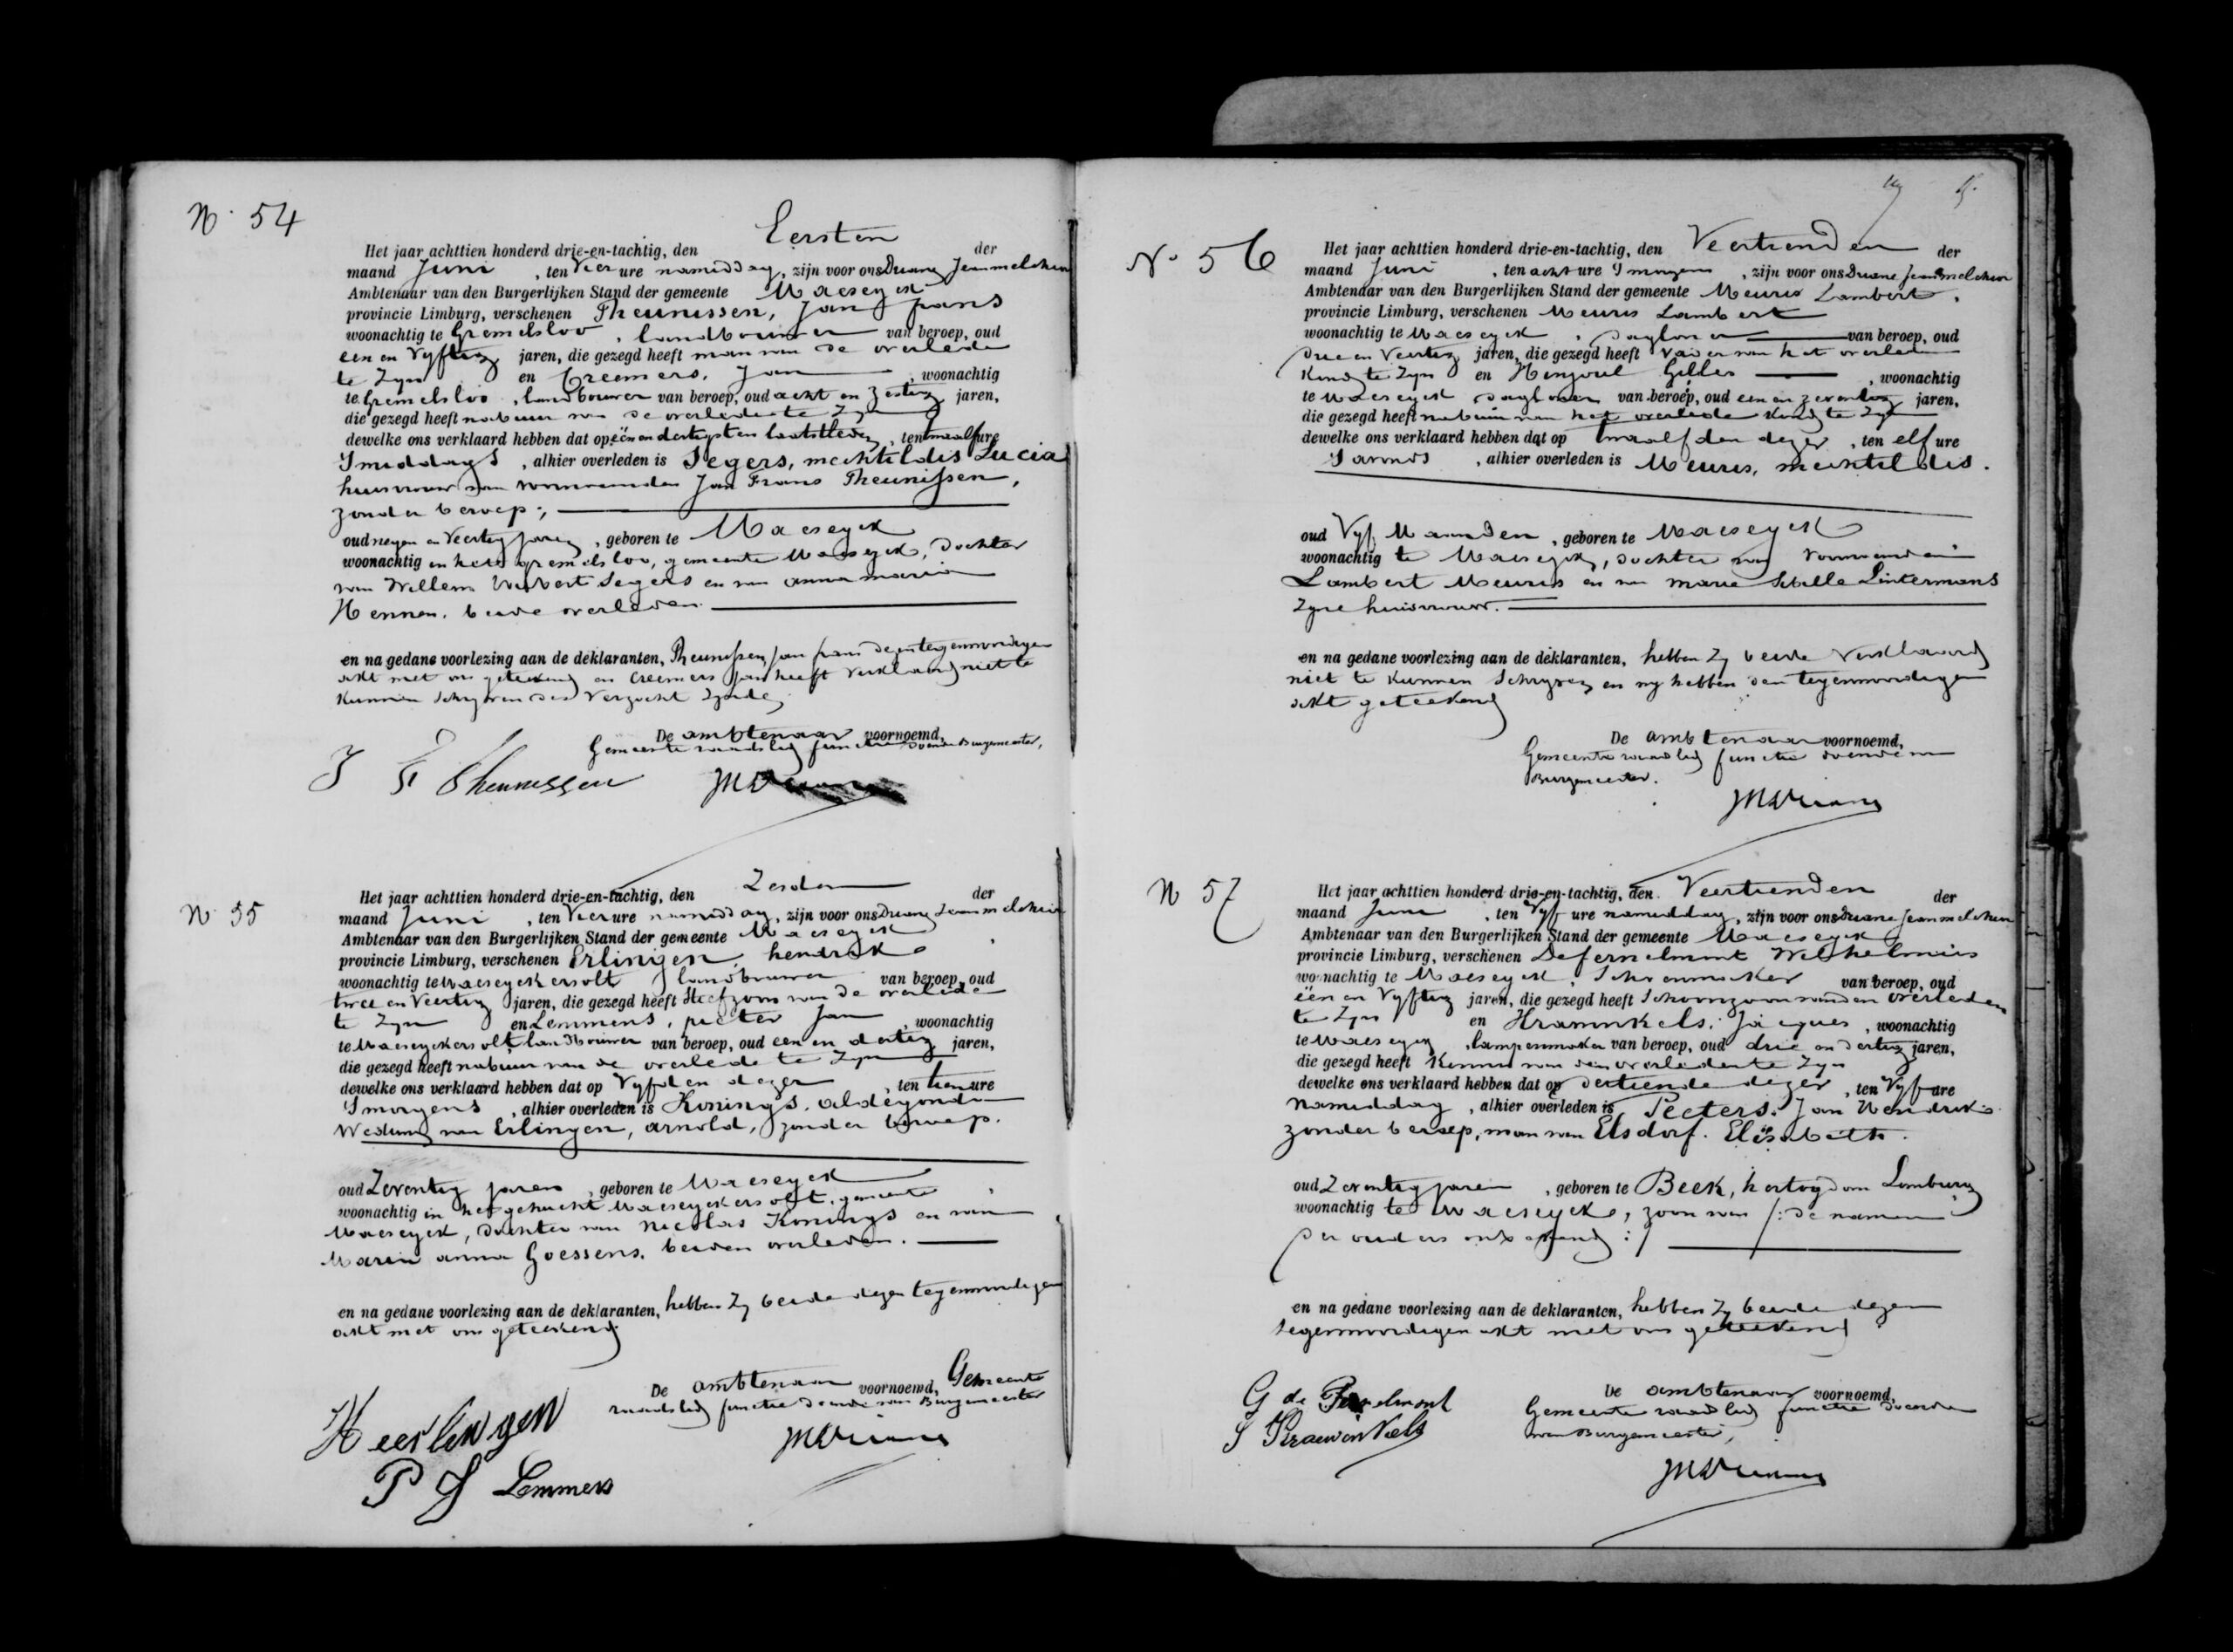 N. 54
Eersten
Het jaar achttien honderd drie-en-tachtig, den der
maand Juni , ten Vier ure namiddag, zijn voor ons Jean melchior
Ambtenaar van den Burgerlijken Stand der gemeente Maeseyck
provincie Limburg, verschenen Theunissen, Jan frans
woonachtig te Gremelsloo , landbouwer van beroep, oud
een en Vyftig jaren, die gezegd heeft man van de overlede
te Zyn en Creemers, Jan , woonachtig
te Gremelsloo , landbouwer van beroep, oud acht en Zestig jaren,
die gezegd heeft nabuur van de overledente Zyn
dewelke ons verklaard hebben dat op eën en dertigsten laatstleden , ten twaalf ure
Smiddags , alhier overleden is Segers, mechtildis Lucia
huisvrouw van voornoemden Jan Frans Theunissen,
zonder beroep;
oud negen en Veertig jaren , geboren te Maeseyck
woonachtig in het gremelsloo, gemeente Maeseyck, dochter
van Willem Hubert Segers en van anna maria
Hennen. beide overleden.
en na gedane voorlezing aan de deklaranten, Theunissen Jan frans dezen tegenwoordigen
akt met ons geteekend en Creemers Jan heeft verklaard niet te
kunnen schryven des Verzocht Zynde
De ambtenaar voornoemd,
Gemeente raadslid functie doende Burgemeester,
J F Theunissen
N. 55
Zesden
Het jaar achttien honderd drie-en-tachtig, den der
maand Juni , ten Vier ure namiddag, zijn voor ons Jean melchior
Ambtenaar van den Burgerlijken Stand der gemeente Maeseyck
provincie Limburg, verschenen Erlingen, hendrik
woonachtig te Maeseyckersolt , landbouwer van beroep, oud
twee en Veertig jaren, die gezegd heeft Steefzoon van de overlede
te Zyn en Lemmens, pieter Jan , woonachtig
te Maeseyckersolt, landbouwer van beroep, oud een en dertig jaren,
die gezegd heeft nabuur van de overlede te Zyn
dewelke ons verklaard hebben dat op Vyfden dezer , ten tien ure
Smorgens , alhier overleden is Konings, aldegonda
Weduwe van Erlingen, arnold, zonder beroep.
oud Zeventig jaren , geboren te Maeseyck
woonachtig in het gehucht Maeseyckersolt, gemeente
Maeseyck, dochter van Nicolas Konings en van
Maria anna Goessens. beiden overleden.
en na gedane voorlezing aan de deklaranten, hebben Zy beide dezen tegenwoordigen
akt met ons geteekend
De ambtenaar voornoemd, Gemeente
raadslid functie doende van Burgemeester
H eerlingen
P J Lemmens
N. 56
Het jaar achttien honderd drie-en-tachtig, den Veertienden der
maand Juni , ten acht ure Smorgens , zijn voor ons Jean melchior
Ambtenaar van den Burgerlijken Stand der gemeente Meuris Lambert,
provincie Limburg, verschenen Meuris Lambert
woonachtig te Maeseyck , dagloner van beroep, oud
drie en Veertig jaren, die gezegd heeft Vader van het overleden
Kind te Zyn en Gilles , woonachtig
te Maeseyck dagloner van beroep, oud een en zeventig jaren,
die gezegd heeft nabuur van het overlede Kind te Zyn
dewelke ons verklaard hebben dat op twaalfden dezer , ten elf ure
Savonds , alhier overleden is Meuris, mechtildis.
oud Vyf Maanden , geboren te Maeseyck
woonachtig te Maeseyck, dochter van Voornoemden
Lambert Meuris en van Maria Sibille Lintermans
Zyne huisvrouw.
en na gedane voorlezing aan de deklaranten, hebben Zy beide Verklaard
niet te Kunnen Schryven en wy hebben den tegenwoordigen
akt geteekend
De ambtenaar voornoemd,
Gemeente raadslid functie doende van
Burgemeester.
N 57
Het jaar achttien honderd drie-en-tachtig, den Veertienden der
maand Juni , ten Vyf ure namiddag, zijn voor ons Jean melchior
Ambtenaar van den Burgerlijken Stand der gemeente Maeseyck
provincie Limburg, verschenen Defernelmont Wilhelmus
woonachtig te Maeseyck, Schoenmaker van beroep, oud
eën en Vyftig jaren, die gezegd heeft Schoonzoon van den overleden
te Zyn en , Jacques , woonachtig
te Maeseyck , lampenmaker van beroep, oud drie en dertig jaren,
die gezegd heeft Kennis van den overledente Zyn
dewelke ons verklaard hebben dat op dertiende dezer , ten Vyf ure
Namiddag , alhier overleden is Peeters, Jan Hendrik
zonder beroep, man van Elsdorf. Elisabeth.
oud Zeventig jaren , geboren te Beek, hertogdom Limburg
woonachtig te Maeseyck, zoon van /: de namen
der ouders onbekend :/
en na gedane voorlezing aan de deklaranten, hebben Zy beide dezen
tegenwoordigen akt met ons geteekend
De ambtenaar voornoemd,
Gemeente raadslid functie doende
van Burgemeester,
G de Fernelmont